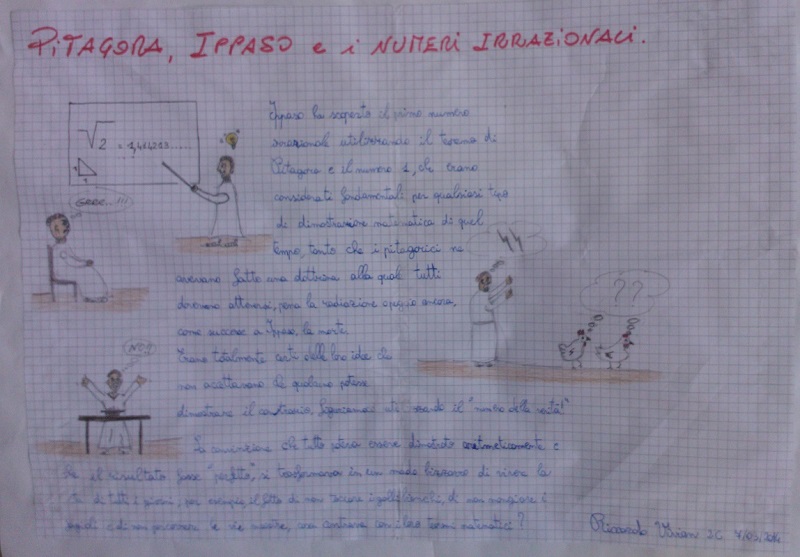 PITAGORA, IPPASO e i NUMERI IRRAZIONALI.
√2 = 1,414213.....
GRRR...!!!
Ippaso ha scoperto il primo numero
irrazionale utilizzando il teorema di
Pitagora e il numero 1, che erano
considerati fondamentali per qualsiasi tipo
di dimostrazione matematica di quel
tempo, tanto che i pitagorici ne
avevano fatto una dottrina alla quale tutti
dovevano attenersi, pena la radiazione o peggio ancora,
come successe a Ippaso, la morte.
??
NO!!
Erano totalmente certi delle loro idee che
non accettavano che qualcuno potesse
dimostrare il contrario, il "numero della realtà"
La convinzione che tutto poteva essere dimostrato aritmeticamente e
se il risultato fosse "perfetto", si trasformava in un modo bizzarro di vivere la
di tutti i giorni, per esempio, il fatto di non i galli bianchi, di non mangiare i
fagioli e di non percorrere le vie maestre, cosa centrava con i loro teoremi matematici?
Riccardo 2C. 7/03/2014